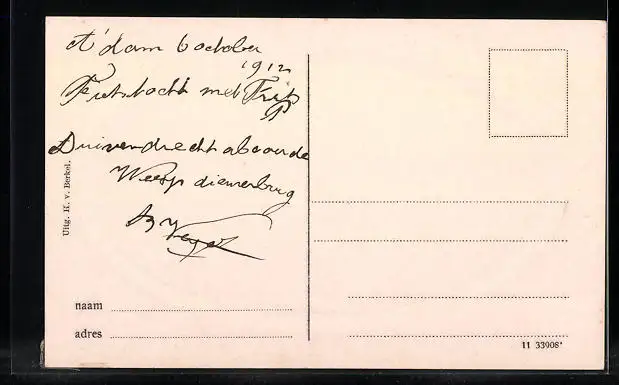 A'dam 6 october
1912
Fietstocht met Frits
Duivendrecht abcoude
Weesp diemerbrug
Uitg. H. v. Berkel.
naam
adres
11 33908*